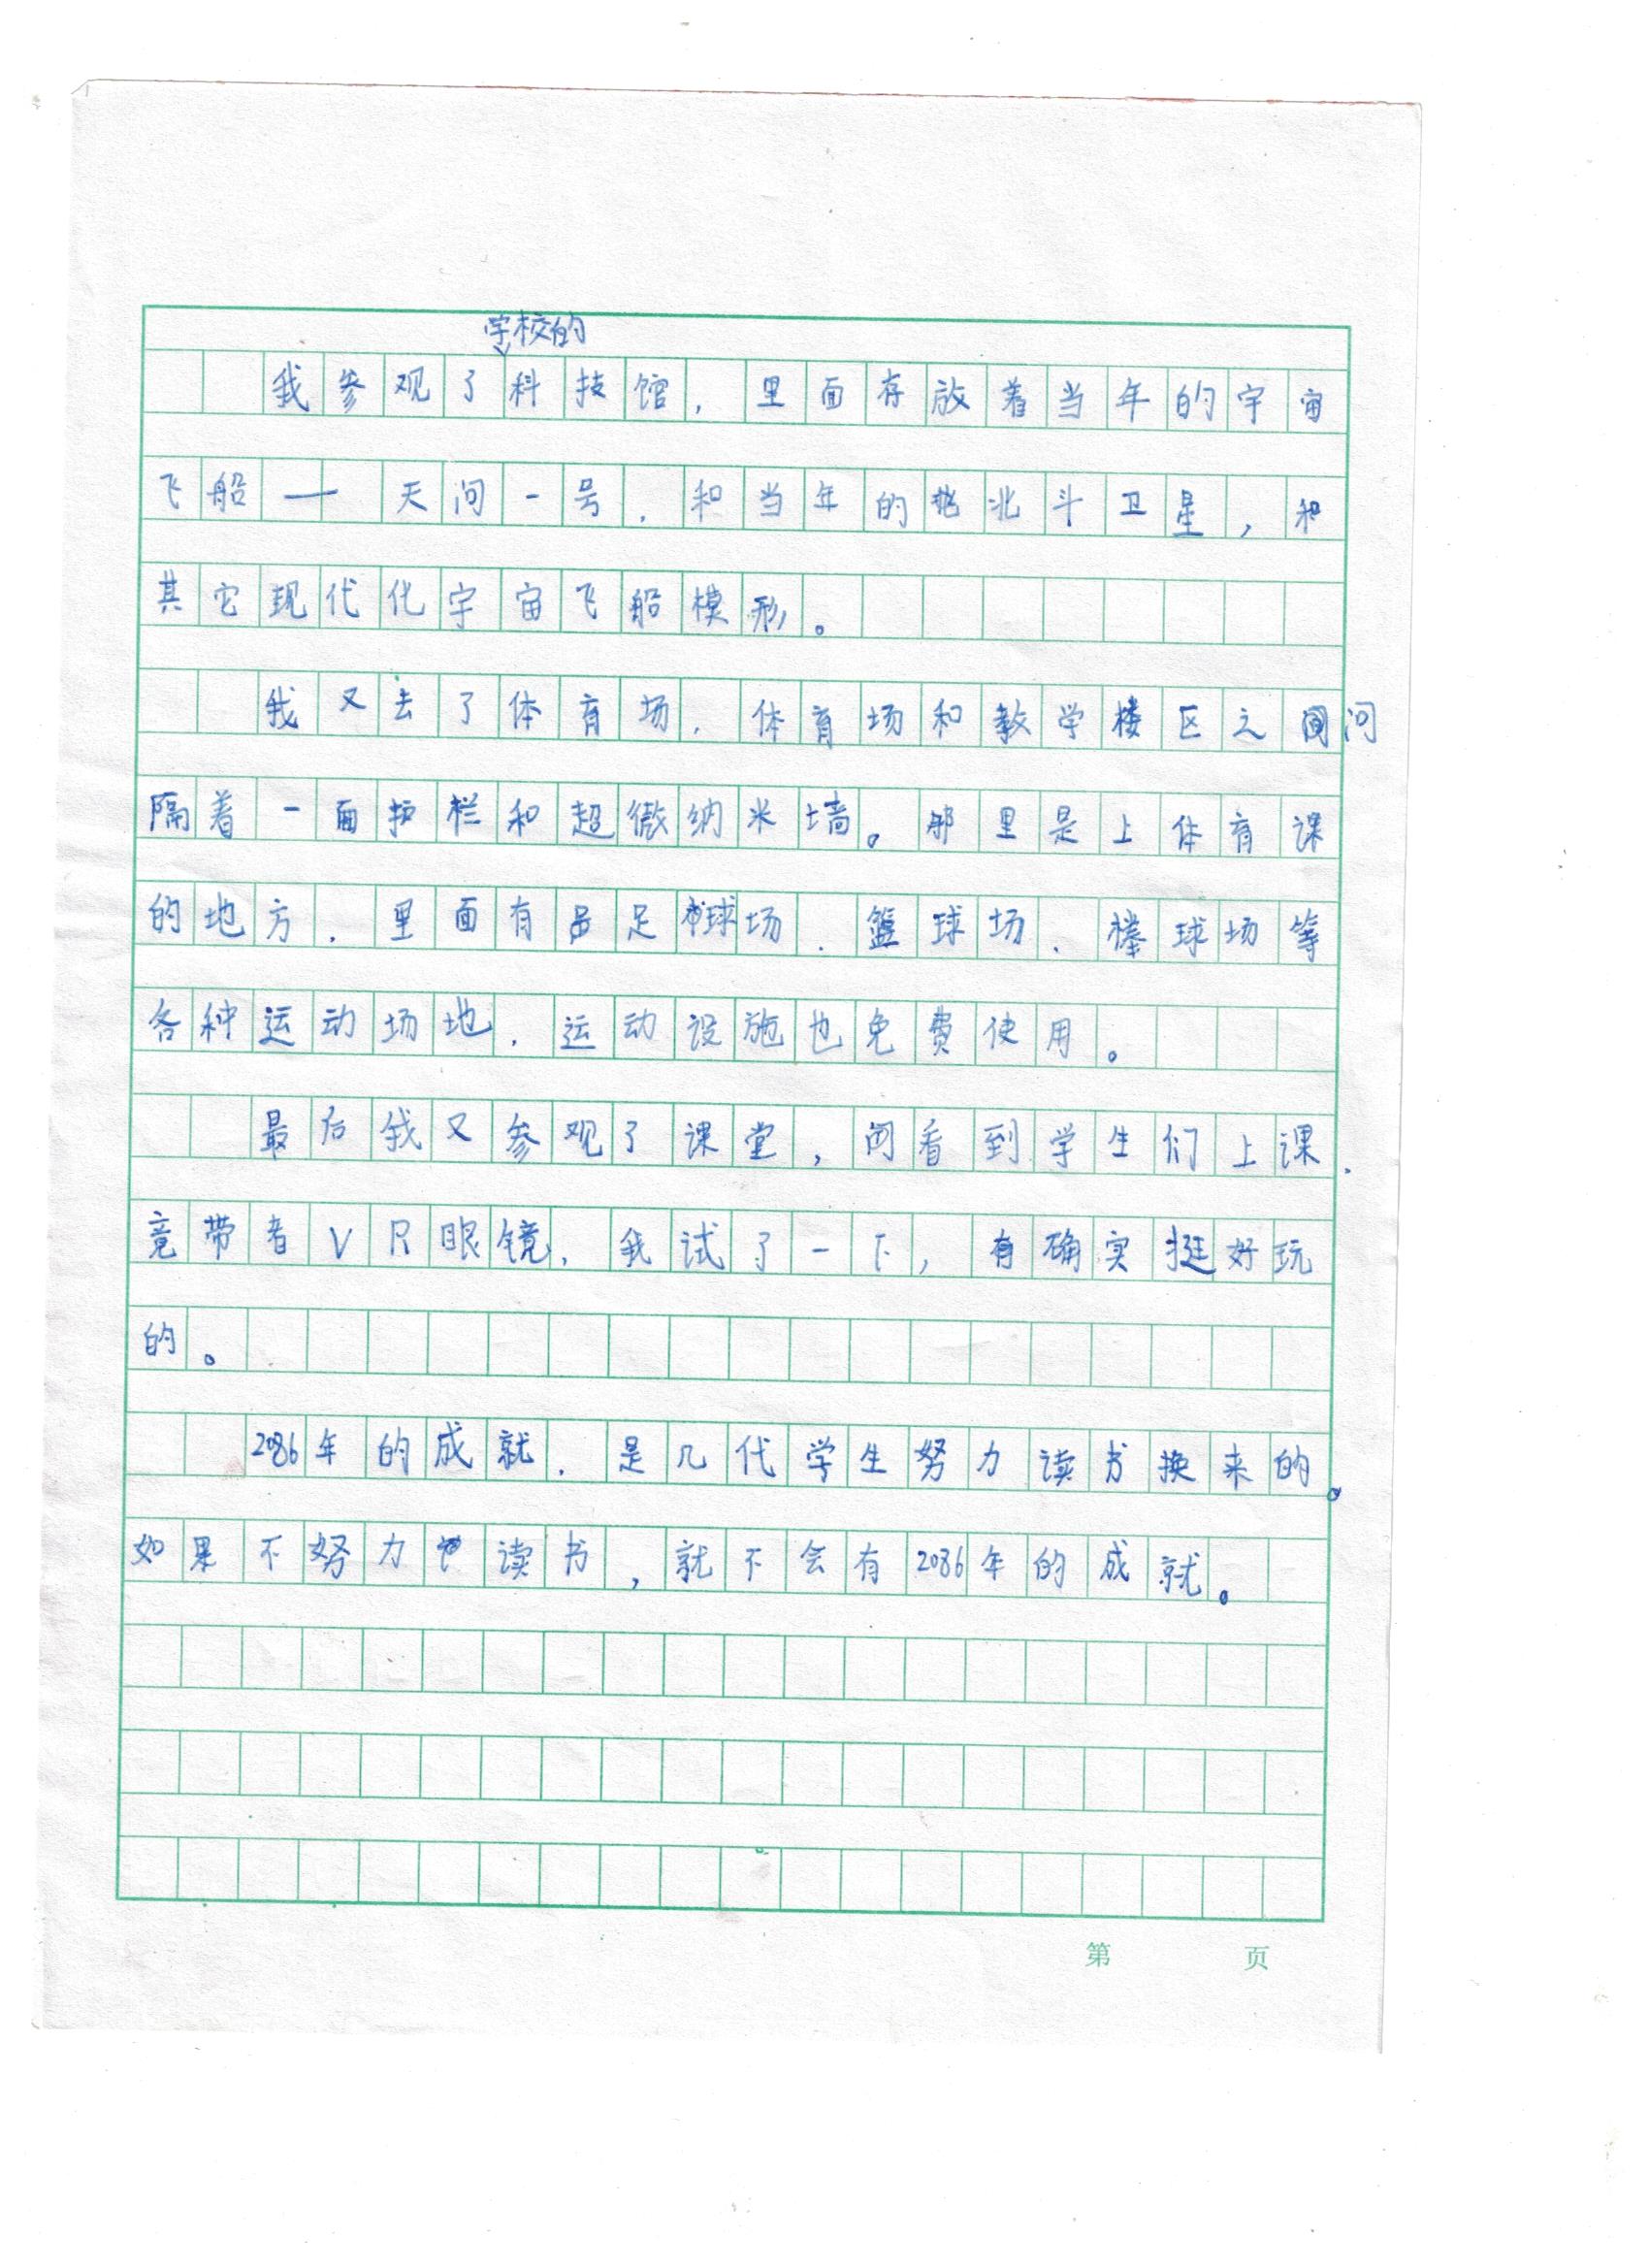 学校的
我参观了科技馆，里面存放着当年的宇宙
飞船——天问一号，和当年的北斗卫星，和
其它现代化宇宙飞船模形。
我又去了体育场，体育场和教学楼区之间
隔着一面护栏和超微纳米墙。那里是上体育课
的地方，里面有足球场、篮球场、棒球场等
各种运动场地，运动设施也免费使用。
最后我又参观了课堂，看到学生们上课，
竟带着VR眼镜，我试了一下，确实挺好玩
的。
2086年的成就，是几代学生努力读书换来的。
如果不努力读书，就不会有2086年的成就。
第 页